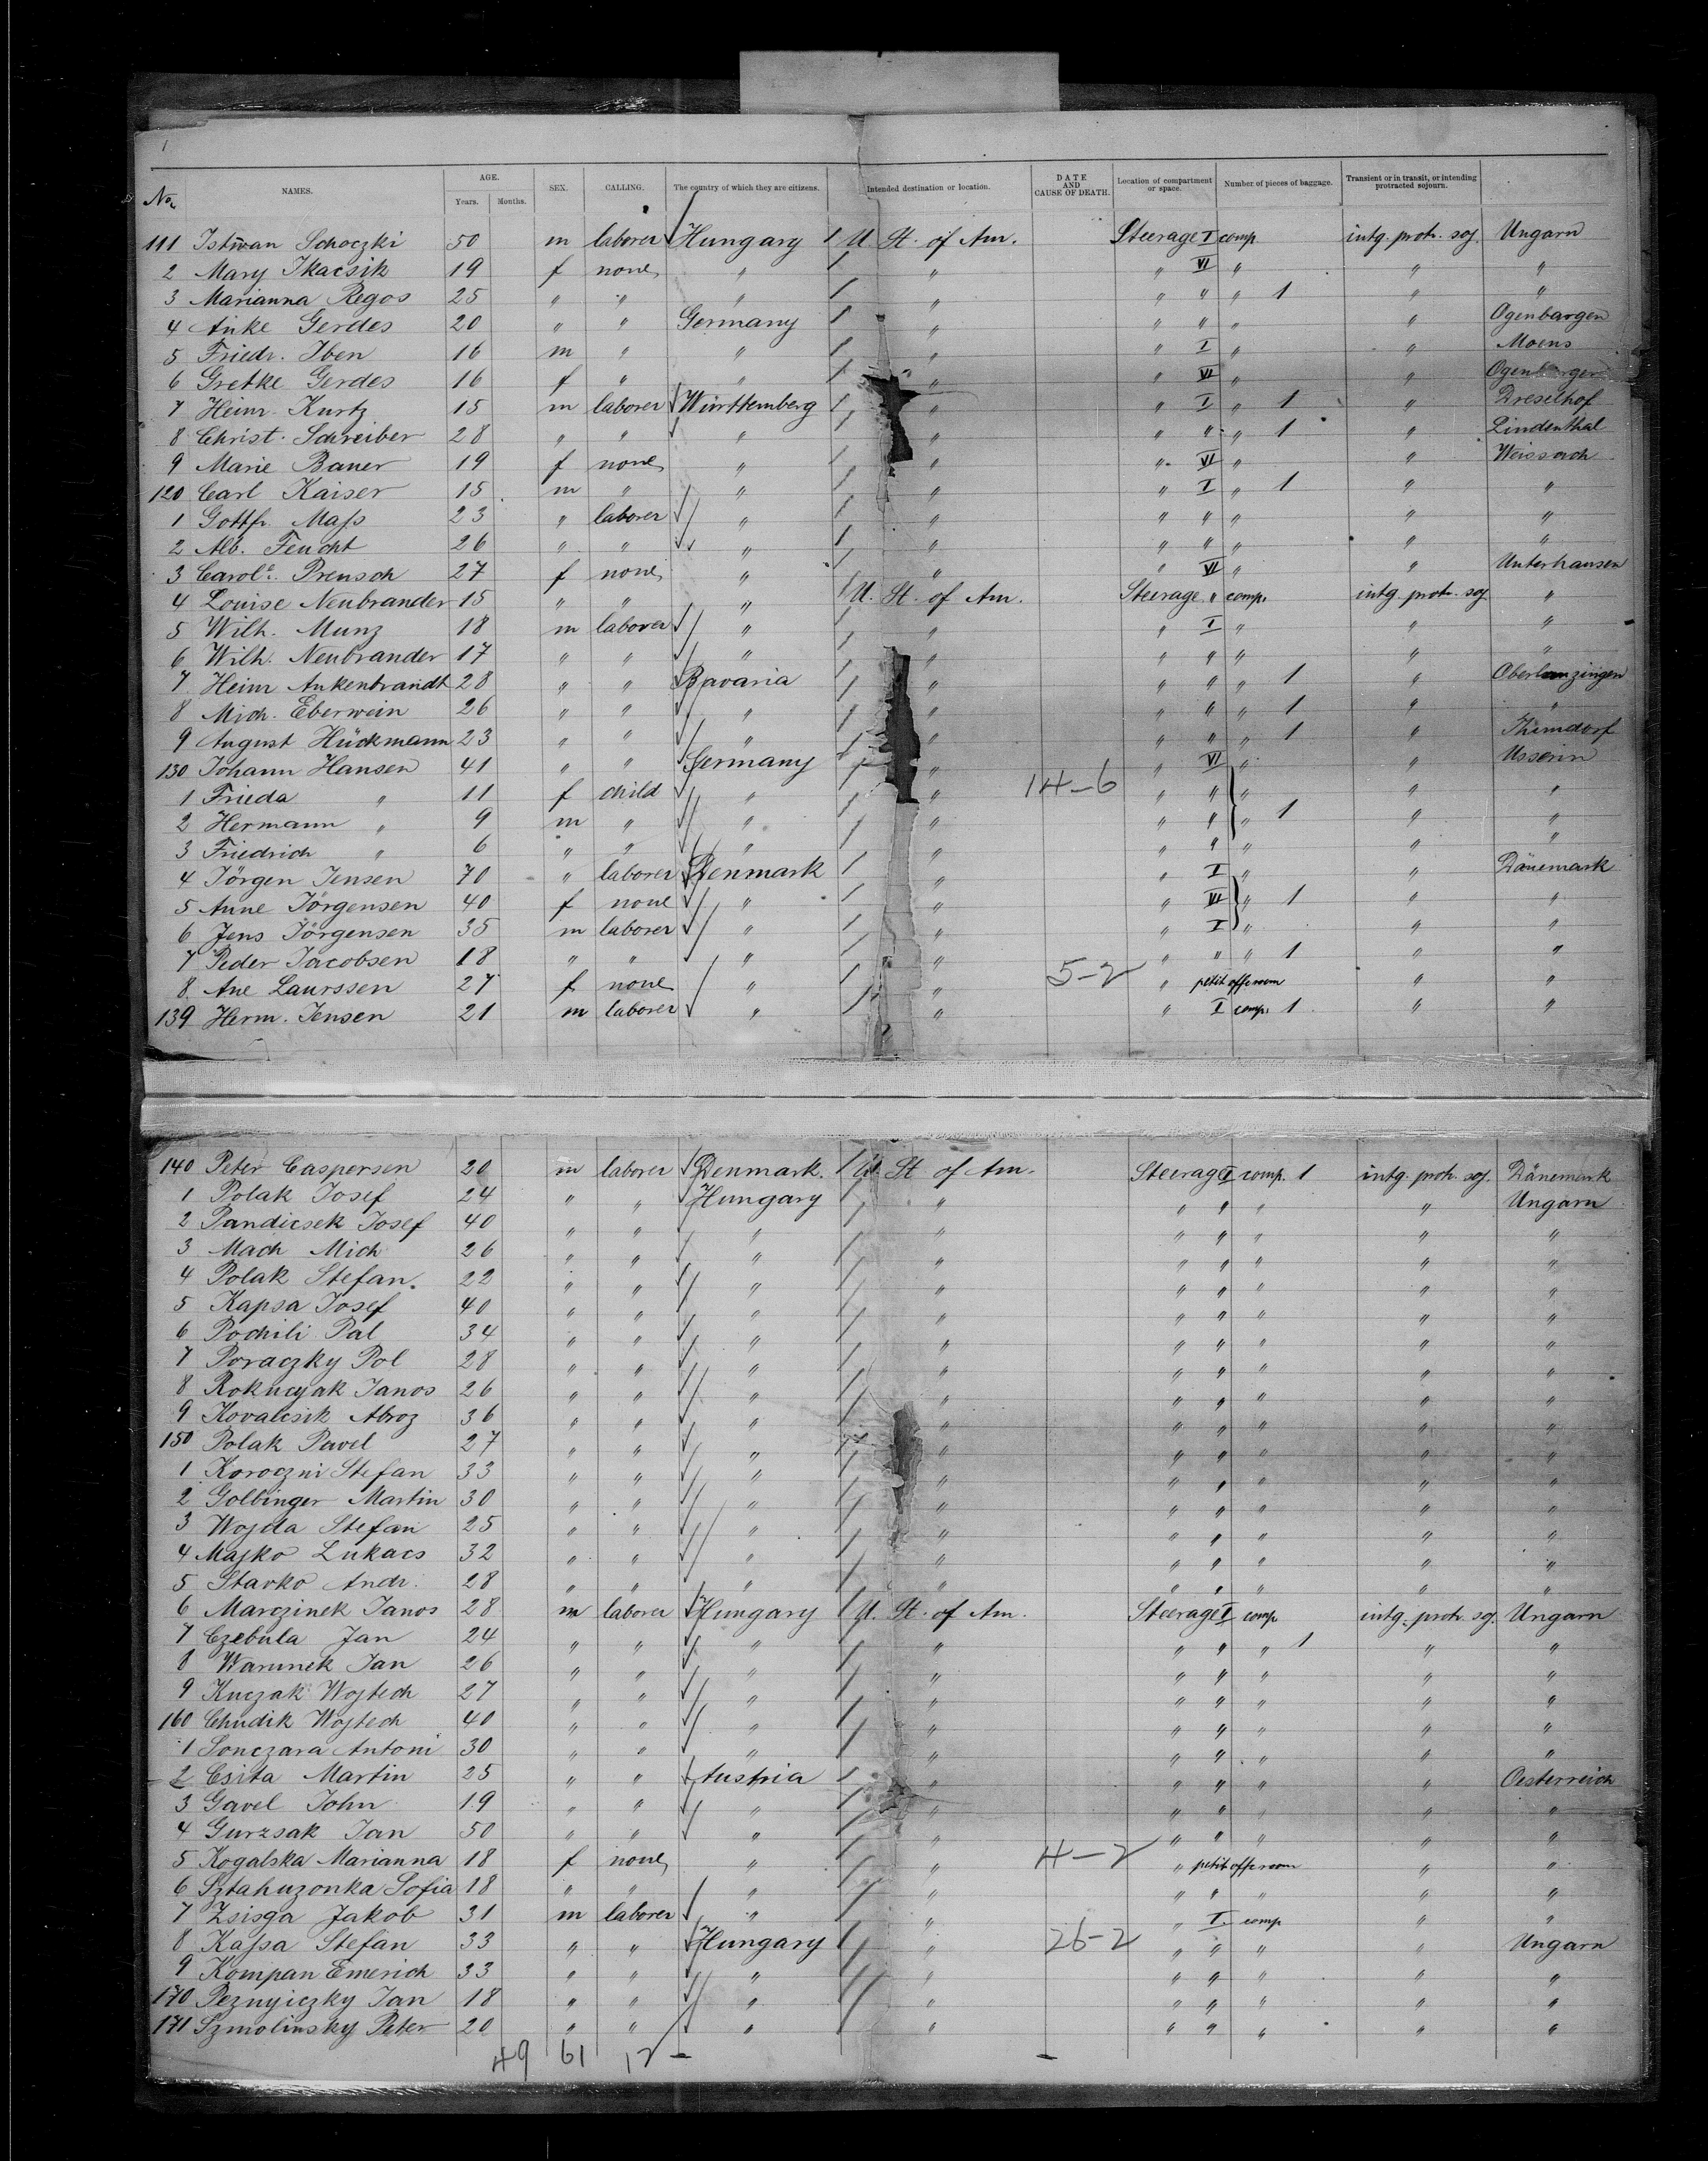 No. NAMES. AGE. Years. Months. SEX. CALLING. The country of which they are citizens. Intended destination or location. DATE AND CAUSE OF DEATH. Location of compartment or space. Number of pieces of baggage. Transient or in transit, or intending protracted sojourn.
111 Istwan Schoczki 50 m laborer Hungary / U. St. of Am. Steerage I comp intg. protr. soj. Ungarn
2 Mary Tkacsik 19 f none " / " " VI " " "
3 Marianna Regos 25 " " " / " " " " 1 " "
4 Anke Gerdes 20 " " Germany / " " " " " Ogenbargen
5 Friedr. Iben 16 m " " / " " I " " Moens
6 Gretke Gerdes 16 f " " / " " VI " "
7 Heinr. Kurtz 15 m laborer Württemberg / " " I " 1 " Dreselhof
8 Christ. Schreiber 28 " " " / " " " " 1 " Lindenthal
9 Marie Bauer 19 f none " / " " VI " " Weissach
120 Carl Kaiser 15 m " " / " " I " 1 " "
1 Gottfr. Maß 23 " laborer " / " " " " " "
2 Alb. Feucht 26 " " " / " " " " " "
3 Carole. Preusch 27 f none " / " " VI " " Unterhausen
4 Louise Neubrander 15 " " " / U. St. of Am. Steerage " comp. intg. protr. soj. "
5 Wilh. Munz 18 m laborer " / " " I " " "
6 Wilh. Neubrander 17 " " " / " " " " " "
7 Heinr Ankenbrandt 28 " " Bavaria / " " " " 1 "
8 Mich. Eberwein 26 " " " / " " " " 1 " "
9 August Hückmann 23 " " " / " " " " 1 "
130 Johann Hansen 41 " " Germany / " " VI " " Usserin
1 Frieda " 11 f child " / " 14-6 " " " " "
2 Hermann " 9 m " " / " " " " 1 " "
3 Friedrich " 6 " " " / " " " " " "
4 Jörgen Jensen 70 " laborer Denmark / " " I " " Dänemark
5 Anne Jörgensen 40 f none " / " " VI " 1 " "
6 Jens Jörgensen 35 m laborer " / " " I " " "
7 Peder Jacobsen 18 " " " / " " " " 1 " "
8. Ane Laurssen 27 f none " / " 5-2 " petit off room " "
139 Herm. Jensen 21 m laborer " / " " I comp. 1 " "
140 Peter Caspersen 20 m laborer Denmark. / U. St of Am. Steerage I comp. 1 intg. protr. soj. Dänemark
1 Polak Josef 24 " " Hungary / " " " " " Ungarn
2 Pandicsek Josef 40 " " " / " " " " " "
3 Mach Mich 26 " " " / " " " " " "
4 Polak Stefan. 22 " " " / " " " " " "
5 Kapsa Josef 40 " " " / " " " " " "
6 Pochili Pal 34 " " " / " " " " " "
7 Poraczky Pol 28 " " " / " " " " " "
8 Rokucyak Janos 26 " " " / " " " " " "
9 Kovalcsik Abroz 36 " " " / " " " " " "
150 Polak Pavel 27 " " " / " " " " " "
1 Koroczni Stefan 33 " " " / " " " " " "
2 Golbinger Martin 30 " " " / " " " " " "
3 Wojda Stefan 25 " " " / " " " " " "
4 Majko Lukacs 32 " " " / " " " " " "
5 Starko Andr. 28 " " " / " " " " " "
6 Marczinek Janos 28 m laborer Hungary / U. St. of Am. Steerage I comp. intg. protr. soj. Ungarn
7 Czebula Jan 24 " " " / " " " " 1 " "
8 Warunek Jan 26 " " " / " " " " " "
9 Kuczak Wojtech 27 " " " / " " " " " "
160 Chudik Wojtech 40 " " " / " " " " " "
1 Sonczara Antoni 30 " " " / " " " " " "
2 Csita Martin 25 " " Austria / " " " " " Oesterreich
3 Gavel John 19 " " " / " " " " " "
4 Gurzsak Jan 50 " " " / " " " " " "
5 Kogalska Marianna 18 f none " / " 4-2 " petit off room " "
6 Sztahuzonka Sofia 18 " " " / " " " " " "
7 Zsisga Jakob 31 m laborer " / " " I. comp " "
8 Kaßa Stefan 33 " " Hungary / " 26-2 " " " " Ungarn
9 Kompan Emerich 33 " " " / " " " " " "
170 Peznyiczky Jan 18 " " " / " " " " " "
171 Szmolinsky Peter 20 " " " / " " " " " "
49 61 12 - -